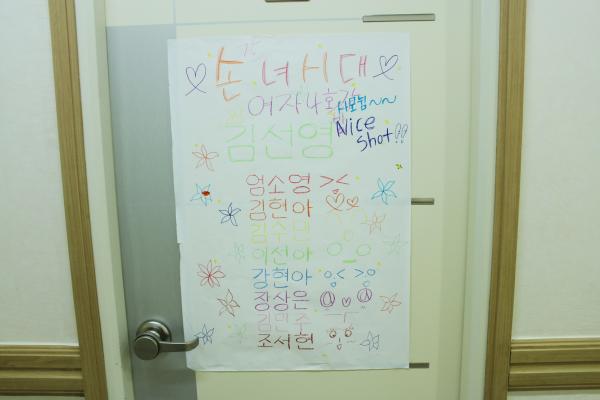 손녀시대
여자나홍길
사모님~~
김선영
Nice
shot!!
엄소영 ><
김현아
김수민
이선아
강현아
장상은
김민주
조서현